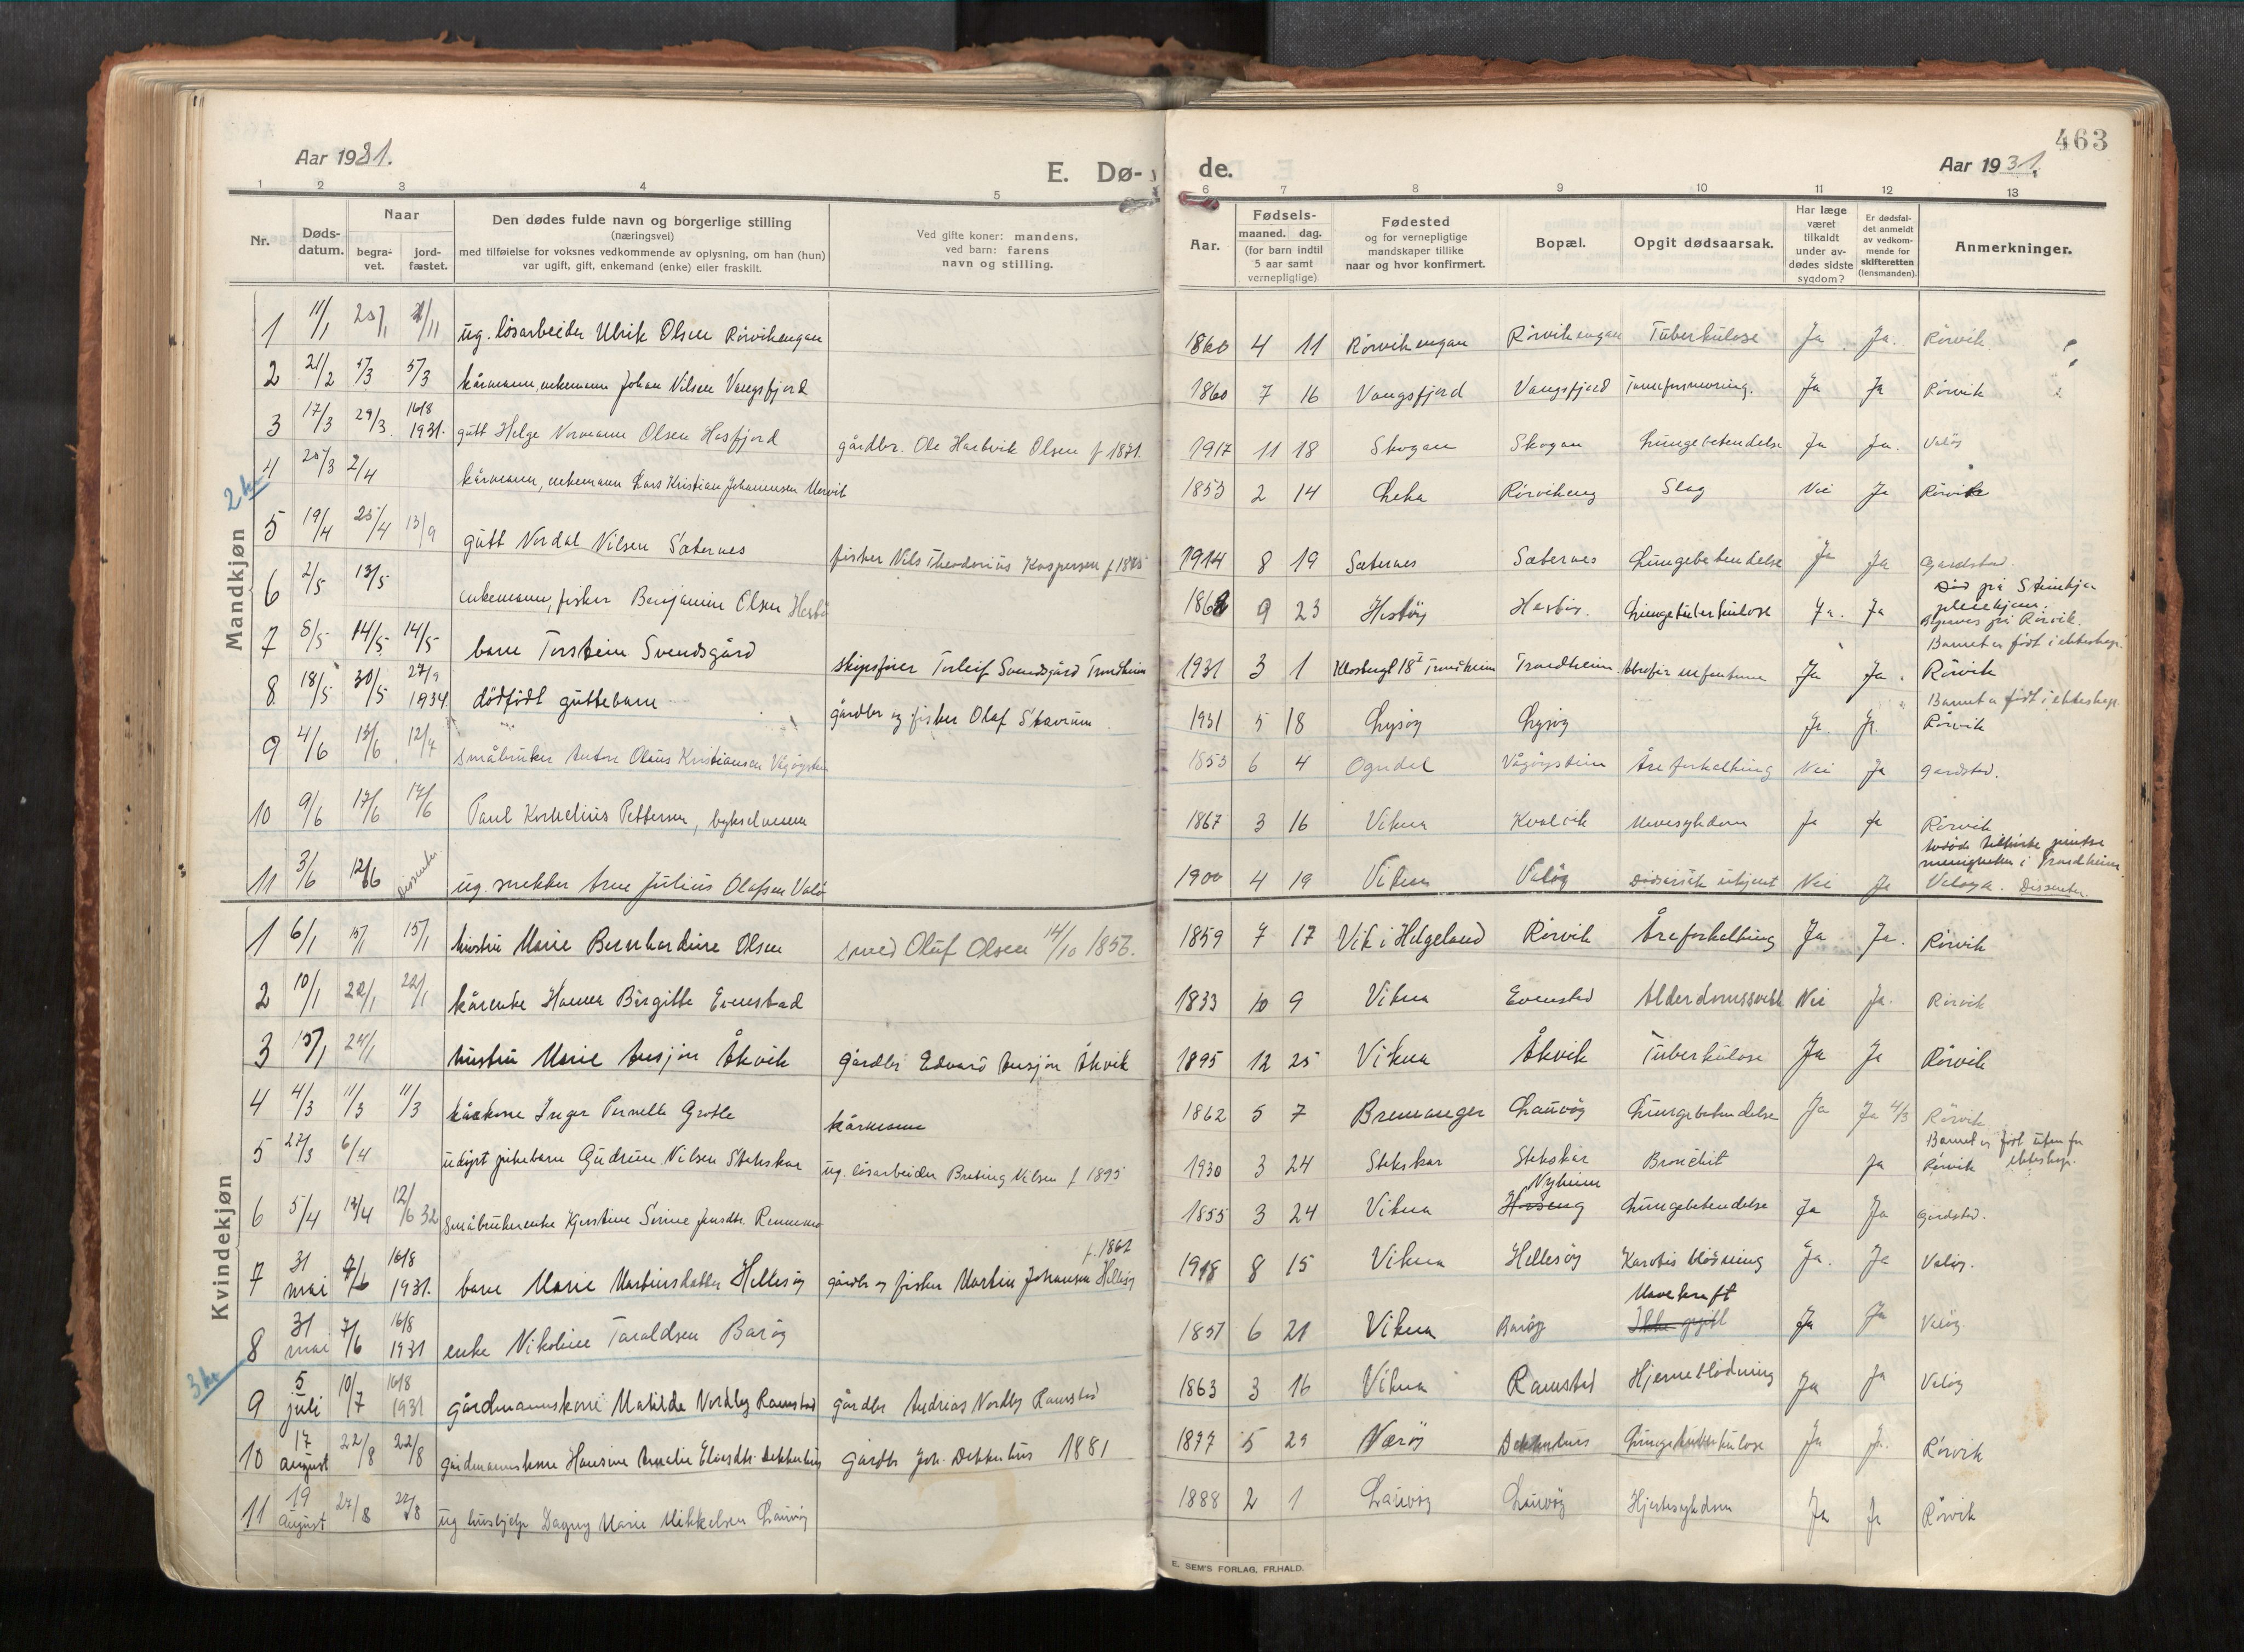 463
Aar 1931.
E. Dø-
de.
Aar 1931.
1 2 3 4 5 6 7 8 9 10 11 12 13
Nr.
Døds-
datum.
Naar
begra-
vet.
jord-
fæstet.
Den dødes fulde navn og borgerlige stilling
(næringsvei)
med tilføielse for voksnes vedkommende av oplysning, om han (hun)
var ugift, gift, enkemand (enke) eller fraskilt.
Ved gifte koner: mandens,
ved barn: farens
navn og stilling.
Aar.
Fødsels-
maaned. dag.
(for barn indtil
5 aar samt
vernepligtige)
Fødested
og for vernepligtige
mandskaper tillike
naar og hvor konfirmert.
Bopæl.
Opgit dødsaarsak.
Har læge
været
tilkaldt
under av-
dødes sidste
sygdom?
Er dødsfal-
det anmeldt
av vedkom-
mende for
skifteretten
(lensmanden).
Anmerkninger.
Mandkjøn
1 11/1 20/1 ug. løsarbeider Ulrik Olsen Rörvikengan 1860 4 11 Rörvikengan Rörvikengan Tuberkulose Ja Ja. Rörvik
2 21/2 5/3 5/3 kårmann, enkemann Johan Nilsen Vangsfjord 1860 7 16 Vangsfjord Vangsfjord Ja Ja Rörvik
3 17/3 29/3 16/8 1931. gutt Helge Normann Olsen Hosfjord gårdbr. Ole Hartvik Olsen f 1871. 1917 11 18 Skogan Skogan Lungebetendelse Ja Ja. Valöy
2 kr
4 20/3 2/4 kårmann, enkemann Lars Kristian Johannessen 1853 2 14 Leka Rörvikeng Slag Nei Ja Rörvik
5 19/4 25/4 13/9 gutt Nordal Nilsen Sæternes fisker Nils Theodorius Kaspersen f 1885 1914 8 19 Sæternes Sæternes Lungebetendelse Ja Ja Garstad.
6 2/5 13/5 enkemann, fisker Benjamin Olsen Hestö 9 23 Hestöy Hestöy. Lungetuberkulose Ja. Ja Död på Steinkjer
pleiehjem.
Begraves på Rörvik.
7 5/5 14/5 14/5 barn Torstein Svendsgård skipsförer Torleif Svendsgård Trondheim 1931 3 1 Trondheim Trondheim Ja Ja. Barnet er född i ekteskap.
Rörvik
8 18/5 30/5 27/9 1934. dödfödt guttebarn gårdbr og fisker Olaf Skavrum 1931 5 18 Lysöy Lysöy Ja. Ja. Barnet er född i ekteskap.
Rörvik
9 4/6 13/6 småbruker Anton Olaus Kristiansen Vågöystein 1853 6 4 Ogndal Vågöystein Åreforkalkning Nei Ja Garstad.
10 9/6 17/6 17/6 Paul Kornelius Pettersen, bykselmann 1867 3 16 Vikna Kvalvik Mavesykdom Ja Ja Rörvik
11 3/6 12/6 Dissenter ug. snekker Arne Julius Olafsen Valö 1900 4 19 Vikna Valöy Nei Ja
menigheten i Trondheim.
Valöya. Dissenter.
Kvindekjøn
1 6/1 15/1 15/1 hustru Marie Bernhardine Olsen smed Oluf Olsen 14/10 1856. 1859 7 17 Vik i Helgeland Rörvik Åreforkalkning Ja Ja. Rörvik
2 10/1 22/1 22/1 kårenke Hanna Birgitte Evenstad 1833 10 9 Vikna Evenstad Alderdomssvekk Nei Ja. Rörvik
3 15/1 24/1 hustru Marie Ansjön Åkvik Gårdbr Edvard Ansjön Åkvik 1895 12 25 Vikna Åkvik Tuberkulose Ja Ja Rörvik
4 4/3 11/3 11/3 kårkone Inger Pernelle Grotle kårmann 1862 5 7 Bremanger Lauvöy Lungebetendelse Ja Ja 4/3 Rörvik
5 27/3 6/4 udöpt pikebarn Gudrun Nilsen Stekskar ug. løsarbeider Nilsen f 1895 1930 3 24 Stekskar Stekskar Bronchit Ja Barnet er född utenfor
Rörvik ekteskap.
6 5/4 12/4 12/6 32 småbrukerenke Kjerstine Sirine Jensdtr. 1855 3 24 Vikna Nyheim Lungebetendelse Ja Ja Garstad.
7 31 mai 7/6 16/8 1931. barn Marie Martinsdatter Hellesöy gårdbr og fisker Martin Johansen Hellesöy f. 1862 1918 8 15 Vikna Hellesöy Karotis blödning Ja. Ja Valöy.
8 31 mai 7/6 16/8 1931 enke Nikoline Taraldsen Baröy 1857 6 21 Vikna Baröy Mavekreft Ja Ja Valöy
3 kr
9 5 juli 10/7 16/8 1931 gårdmannskone Matilde Nordby Ramstad gårdbr Andreas Nordby Ramstad 1863 3 16 Vikna Ramstad Hjerneblödning Ja Ja Valöy
10 17 august 22/8 22/8 gårdmannskone Hansine Amalie Dekkerhus gårdbr Joh. Dekkerhus 1881 1877 5 29 Næröy Dekkerhus Lungetuberkulose Ja Ja. Rörvik
11 19 august 27/8 27/8 ug hushjelp Dagny Marie Mikkelsen Lauvöy 1888 2 1 Lauvöy Lauvöy Hjertesykdom Ja Ja Rörvik
E. SEM'S FORLAG, FR.HALD.